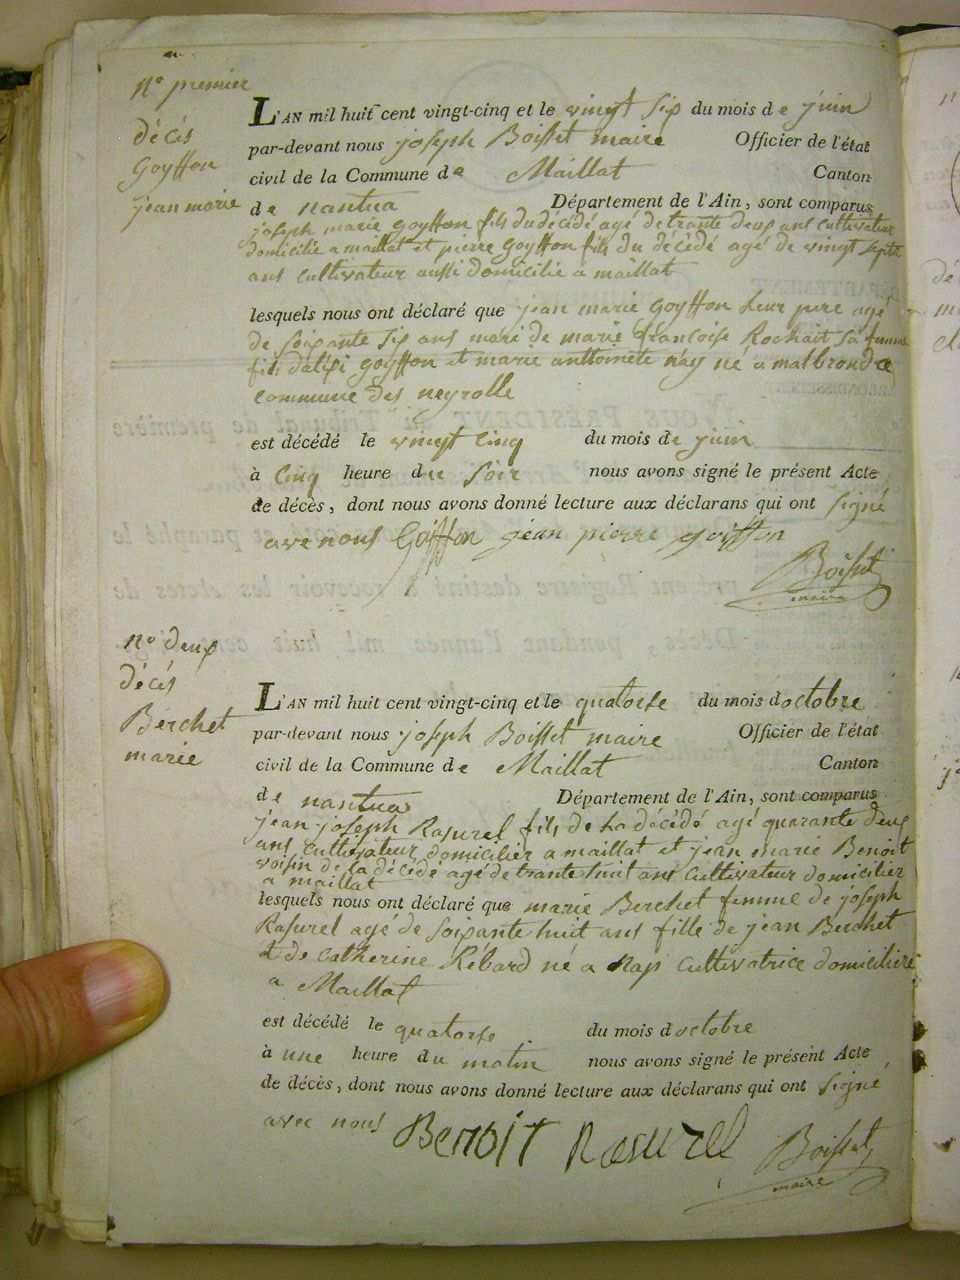 N° premier
décès
Goyffon
jean marie
L'AN mil huit cent vingt-cinq et le vingt six du mois de juin
par-devant nous joseph Boisset maire Officier de l'état
civil de la Commune de Maillat Canton
de nantua Département de l'Ain, sont comparus
joseph marie goyffon fils du décédé agé de trante deux ans cultivateur
domicilié a maillat et pierre goyffon fils du décédé agé de vingt septe
ans cultivateur aussi domicilié a maillat
lesquels nous ont déclaré que jean marie goyffon leur pere agé
de soixante six ans mari de marie francoise Rochait sa femme
fils d'alexi goyffon et marie anthomete nay né a malbronde
commune des neyrolle
est décédé le vingt cinq du mois de juin
à cinq heure du soir nous avons signé le présent Acte
de décès, dont nous avons donné lecture aux déclarans qui ont signé
avec nous Goiffon jean pierre goiffon
Boisset
maire
N° deux
décés
Berchet
marie
L'AN mil huit cent vingt-cinq et le quatorse du mois doctobre
par-devant nous joseph Boisset maire Officier de l'état
civil de la Commune de Maillat Canton
de nantua Département de l'Ain, sont comparus
jean joseph Rasurel fils de la décédé agé quarante deux
ans cultivateur domicilier a maillat et jean marie Benoit
voisin de la décédé agé de trante huit ans cultivateur domicilier
a maillat
lesquels nous ont déclaré que marie Berchet femme de joseph
Rasurel agé de soixante huit ans fille de jean Berchet
et de Catherine Rébard né a Nap cultivatrice domiciliée
a Maillat
est décédé le quatorse du mois doctobre
à une heure du matin nous avons signé le présent Acte
de décès, dont nous avons donné lecture aux déclarans qui ont signé
avec nous BENOIT Rasurel
Boisset
maire